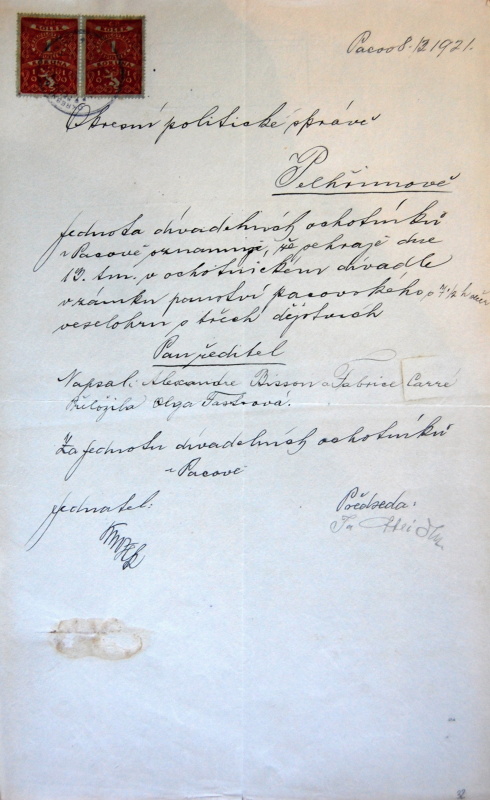 KOLEK KOLEK
1 1
KORUNA KORUNA
Pacov 8./3. 1921.
Okresní politické správě
v Pelhřimově
Jednota divadelních ochotníků
v Pacově oznamuje, že sehraje dne
13. tm. v ochotnickém divadle
v zámku panství pacovského o 7 1/2 h. večer
veselohru o třech dějstvích
Pan ředitel
Napsal: Alexandre Bisson a Fabrice Carré
Přeložila Olga Fastrová.
Za jednotu divadelních ochotníků
v Pacově
jednatel: Předseda: